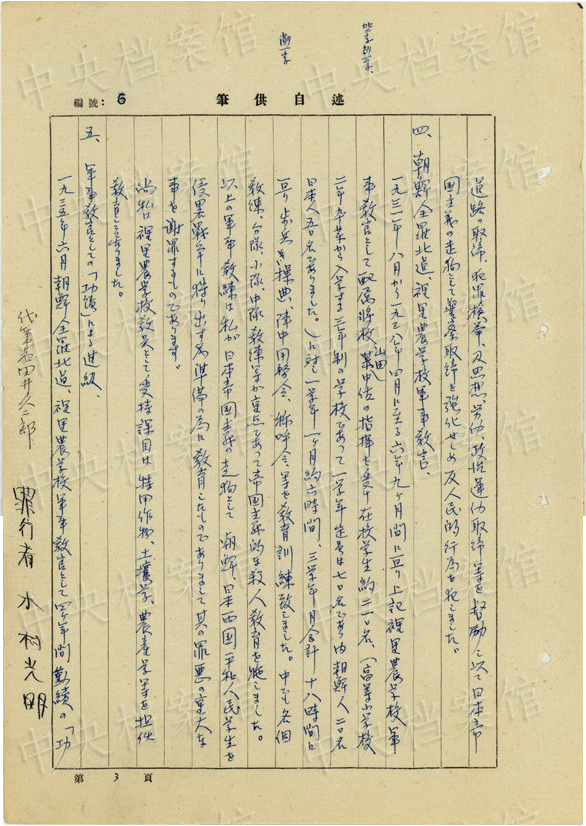 編號: 6
筆供自述
道路の取締、犯罪検挙、及思想、労仂、政治運仂取締等を督励し以て日本帝
国主義の走狗として警察取締を強化せしめ反人民的行為を犯しました。
四、朝鮮全羅北道、裡里農学校軍事教官、
一九三一年八月から一九三八年四月に至る六年九ヶ月間に亘り上記裡里農学校軍
事教官として配属将校、山田某中佐の指揮を受け在校学生約二一〇名、（高等小学校
二年卒業から入学する三年制の学校であって一学年定員は七〇名であり内朝鮮人二〇名
日本人五〇名でありました。）に対し一学年一ヶ月約六時間、三学年月合計十八時間に
亘り歩兵操典、陣中用務令、称呼令、等を教育訓練致しました。中でも各個
教練、分隊、小隊、中隊教練等が重点であって帝国主義的な殺人教育を施しました。
以上の軍事教練は私が日本帝国主義の走狗として朝鮮、日本両国平和人民学生を
侵略戦争に狩り出す為準備の為に教育したものでありまして其の罪悪の重大な
事を謝罪するものであります。
尚私は裡里農学校教員として受持課目は特用作物、土壌学、農産学等を担任
教育して参りました。
五、軍事教官としての「功績」による進級、
一九三五年六月朝鮮全羅北道、裡里農学校軍事教官として四ヶ年間勤績の「功
代筆者田井久二郎
罪行者 木村光明
第 3 頁
中央档案馆